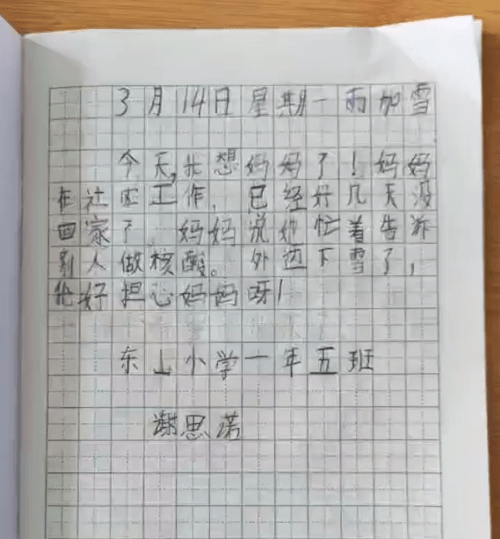 3月14日 星期一 雨加雪
今天,我想妈妈了！妈妈
在社区工作,已经好几天没
回家了,妈妈说她忙着告诉
别人做核酸。外边下雪了,
我好担心妈妈呀！
东山小学一年五班
谢思诺